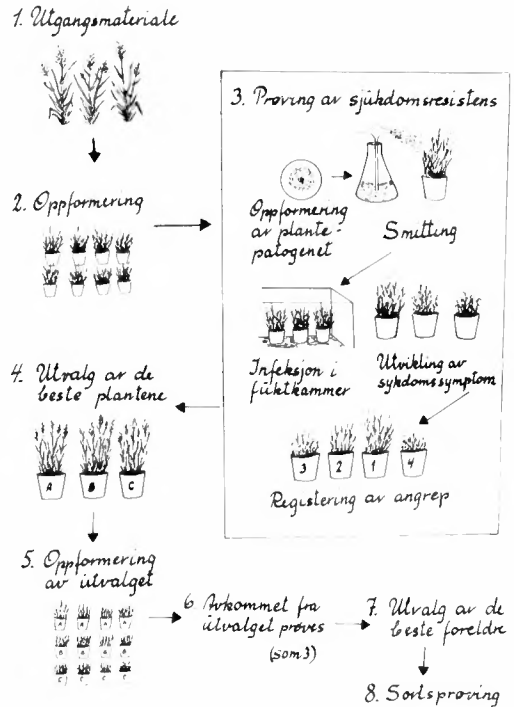 1. Utgangsmateriale
2. Oppformering
3. Prøving av sjukdomsresistens
Oppformering
av plante-
patogenet
Smitting
Infeksjon i
fuktkammer
Utvikling av
sykdomssymptom
3 2 1 4
Registering av angrep
4. Utvalg av de
beste plantene
A B C
5. Oppformering
av utvalget
A A A A
B B B B
C C C C
6. Avkommet fra
utvalget prøves
(som 3)
7. Utvalg av de
beste foreldre
8. Sortsprøving